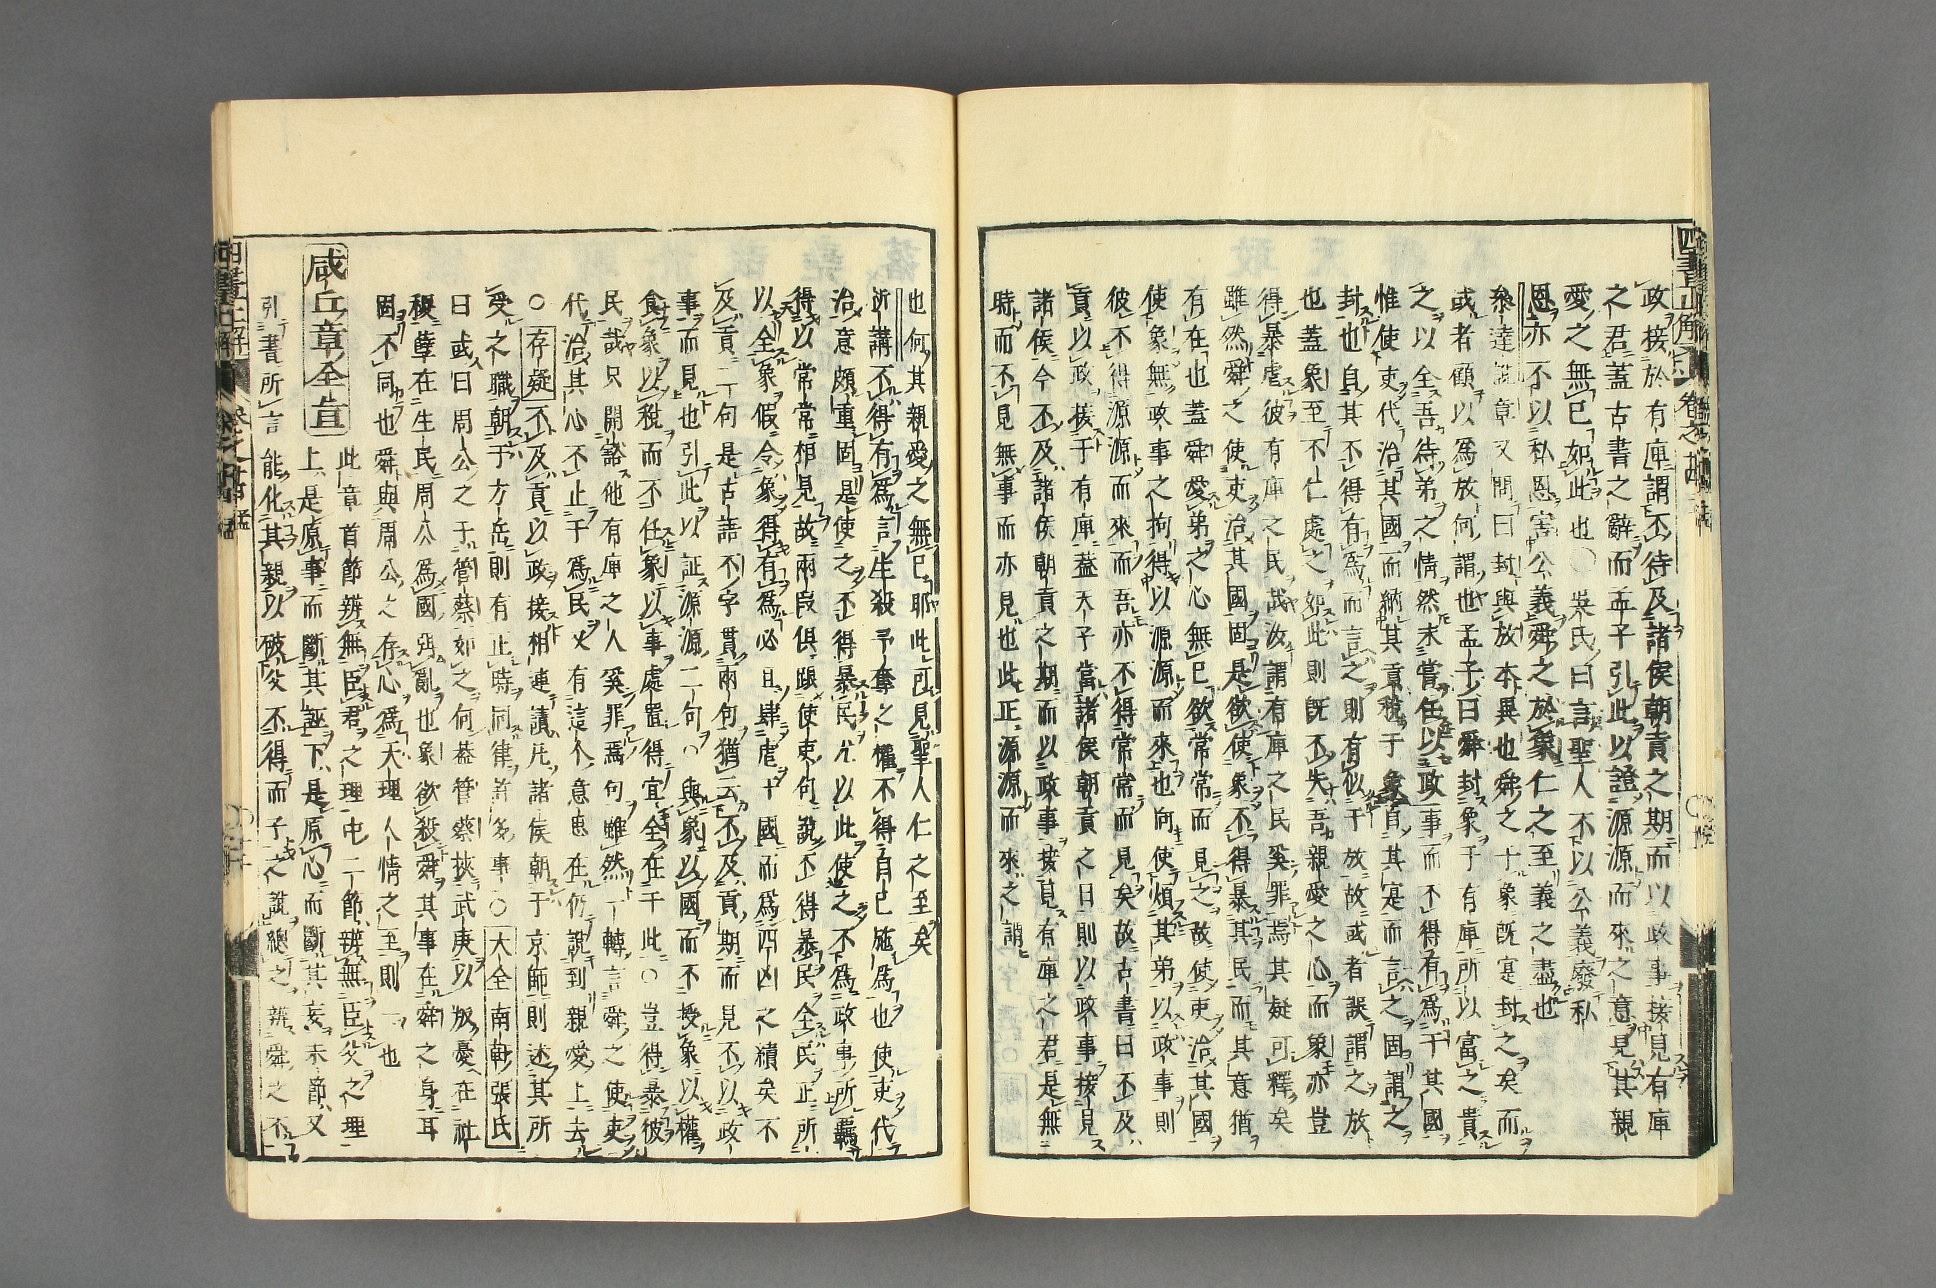 政接於有庳謂不待及諸侯朝貢之期而以政事接見有庳
之君蓋古書之辭而孟子引此以證源源而來之意見其親
愛之無已如此也○吳氏曰言聖人不以公義廢私
恩亦不以私恩害公義舜之於象仁之至義之盡也
叅達說章又問曰封與放本異也舜之于象既寔封之矣而
或者顧以爲放何謂也孟子曰舜封象于有庳所以富之貴
之以全吾待弟之情然未嘗任以政事而不得有爲于其國
惟使吏代治其國而納其貢稅于象耳其寔而言之固謂之
封也自其不得有爲而言之則有似于放故或者誤謂之放
也蓋象至不仁處之如此則既不失吾親愛之心而象亦豈
得暴虐彼有庳之民哉汝謂有庳之民奚罪焉其疑可釋矣
雖然舜之使吏治其國固是欲使象不得暴其民而其意猶
有在也蓋舜愛弟之心無已欲常常而見之故使吏治其國
使象無政事之拘得以源源而來也向使煩其弟以政事則
彼不得源源而來而吾亦不得常常而見矣故古書曰不及
貢以政接于有庳蓋天子當諸侯朝貢之日則以政事接見
諸侯今不及諸侯朝貢之期而以政事接見有庳之君是無
時而不見無事而亦見也此正源源而來之謂
也何其親愛之無已耶此可見聖人仁之至矣
析講不得有爲言生殺予奪之權不得自已施爲也使吏代
治意頗重固是使之不得暴民尤以此使之不爲政事所羈
得以常常相見故兩段俱跟使吏句說不得暴民全民正所
以全象假令象得有爲必且肆虐十國而爲四凶之續矣不
及貢二句是古語不字貫兩句猶云不及貢期而見不以政
事而見也引此以証源源二句○與象以國而不授象以權
食象以稅而不任象以事處置得宜全在于此○豈得暴彼
民哉只開豁他有庳之人奚罪焉句雖然一轉言舜之使吏
代治其心不止于爲民火有這个意思在仍說到親愛上去
○存疑不及貢以政接相連讀凡諸侯朝于京師則述其所
受之職朝于方岳則有止時同律許多事○大全南軒張氏
曰或曰周公之于管蔡如之何蓋管蔡挾武庚以叛憂在社
稷孽在生民周公爲國弭亂也象欲殺舜其事在舜之身耳
固不同也舜與周公之存心爲天理人情之至則一也
咸丘章全旨
此章首節辨無臣君之理屯二節辨無臣父之理
上是原事而斷其誣下是原心而斷其妄末節又
引書所言能化其親以破父不得而子之說總之辨舜之不